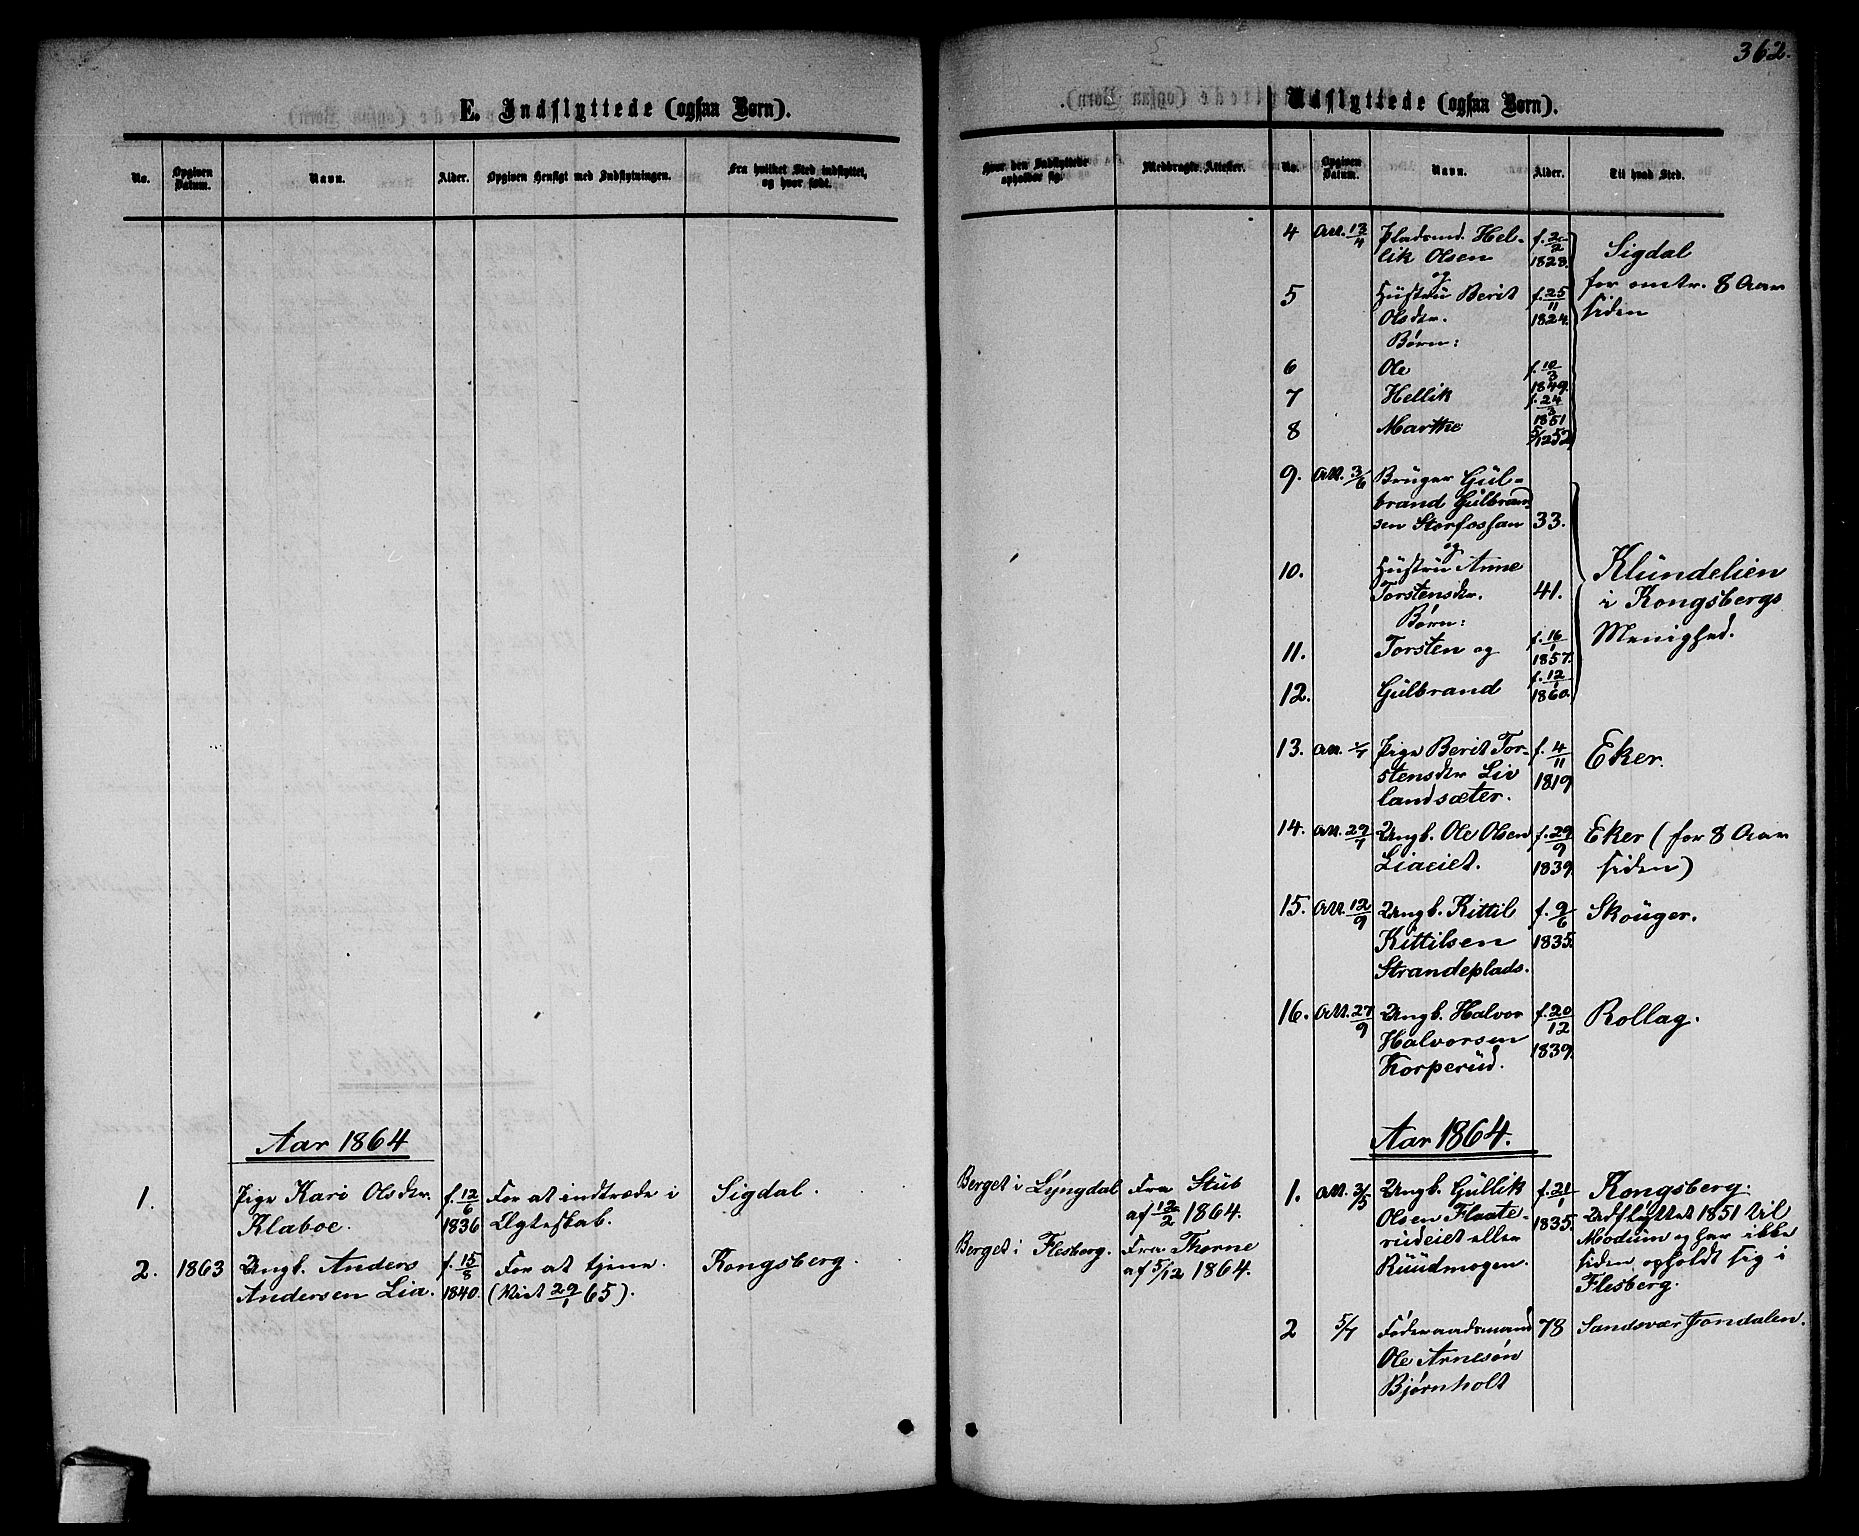 362.
E. Indflyttede (ogsaa Børn).
No. Opgiven Datum. Navn. Alder. Opgiven Hensigt med Indflytningen. Fra hvilket Sted indflyttet, og hvor født.
Aar 1864
1. Pige Kari Olsdr. f. 12/6 For at indtræde i Sigdal.
Klaboe. 1836 Ægteskab.
2. 1863 Ungk. Anders f. 15/8 For at tjene. Kongsberg.
Andersen Lia. 1840. (Vist 29/1 65).
Udflyttede (ogsaa Børn).
Hvor den Indflyttede opholder sig. Medbragte Attester. No. Opgiven Datum. Navn. Alder. Til hvad Sted.
4 Att. 13/4 Pladsmd. Hel- f. 2/2 Sigdal
lik Olsen 1823. for omtr. 8 Aar
og siden
5 Hustru Berit f. 25/11
Olsdr. 1824.
Børn:
6 Ole f. 10/3 1849.
7 Hellik f. 24/3 1851
8 Marthe 5/12 52
9. Att. 3/6 Bruger Gul-
brand Gulbrand-
sen Storfossan 33.
og
10. Hustru Anne Klundelien
Torstensdr. 41. i Kongsbergs
Børn: Menighed.
11. Torsten og f. 16/1 1857.
12. Gulbrand f. 12/1 1860.
13. Att. Pige Berit Tor- f. 4/11 Eker.
stensdr Liv 1819
landsæter.
14. Att. 29/7 Ungk. Ole Olsen f. 29/9 Eker (for 8 Aar
Liaeiet. 1839. siden)
15. Att. 12/9 Ungk. Kittil f. 9/6 Skouger.
Kittilsen 1835.
Strandeplads.
16. Att. 27/9 Ungk. Halvor f. 20/12 Rollag.
Halvorsen 1839.
Korperud.
Aar 1864.
Berget i Lyngdal Fra Stub 1. Att. 3/5 Ungk. Gullik f. 21/1 Kongsberg.
af 12/2 1864. Olsen Flaate- 1835. Udflyttet 1851 til
Berget i Flesberg. Fra Thorne rudeiet eller Modum og har ikke
af 5/12 1864. Ruudmogen. siden opholdt sig i
Flesberg.
2 5/7 Føderaadsmand 78 Sandsvær Jondalen.
Ole Arnesøn
Bjørnholt